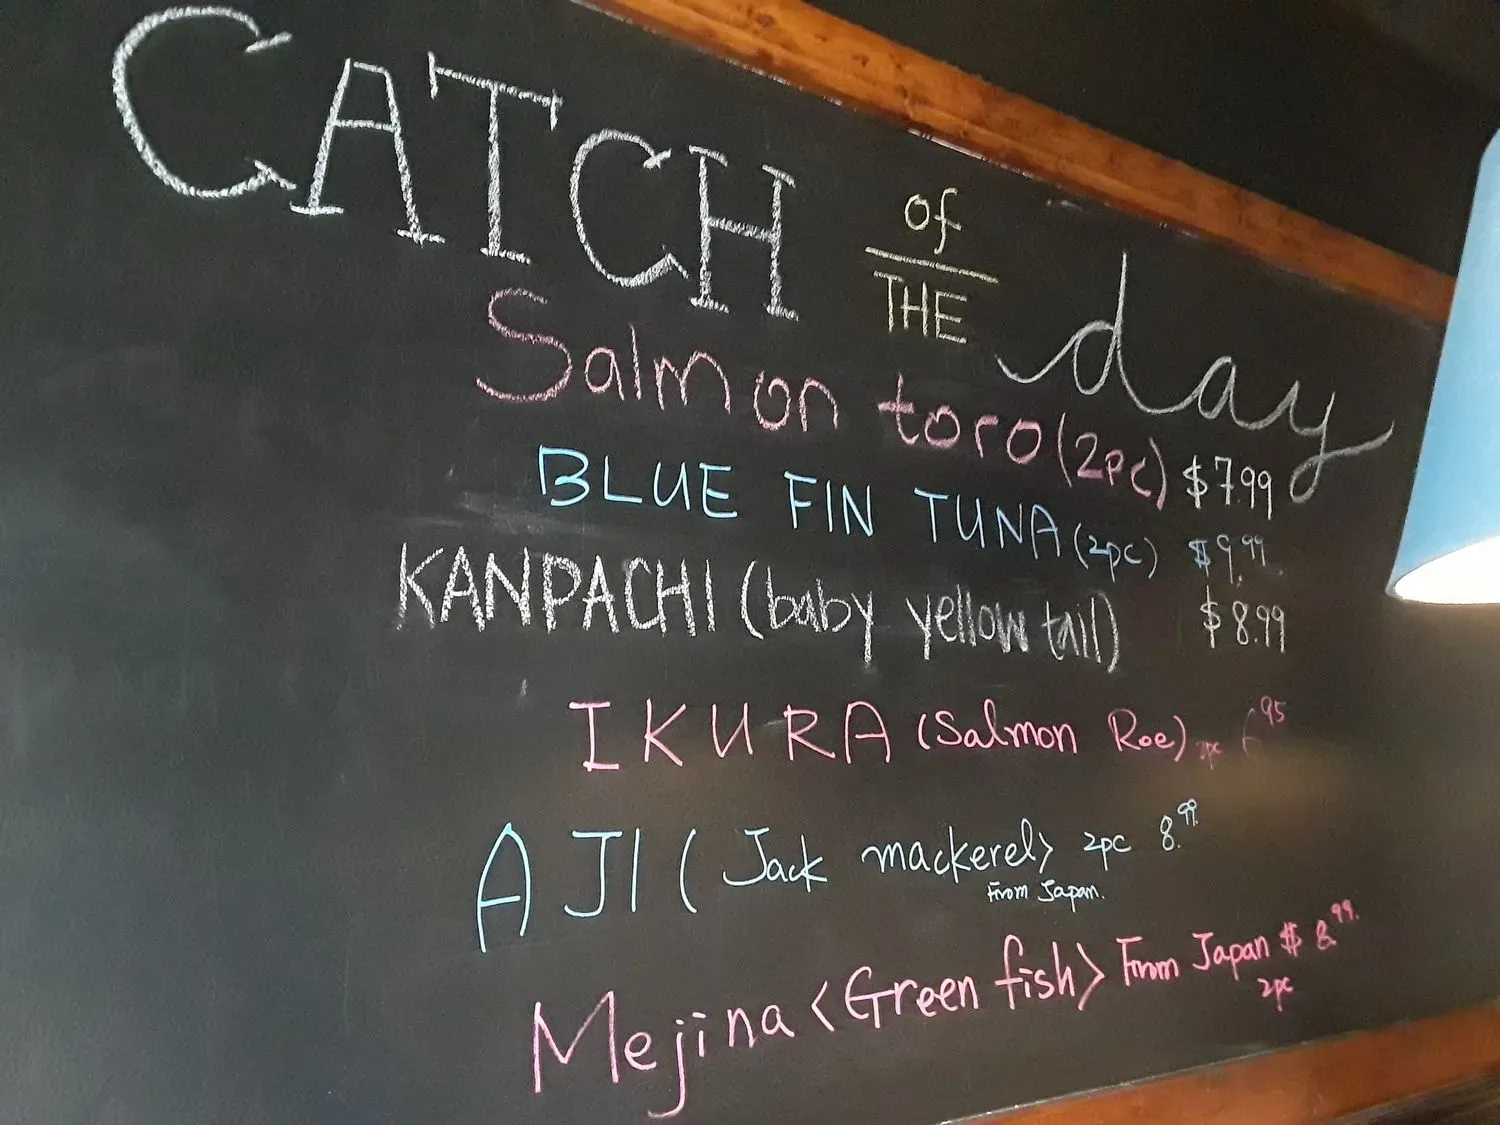 CATCH of THE day
Salmon toro (2pc) $7.99
BLUE FIN TUNA (2pc) $9.99
KANPACHI (baby yellow tail) $8.99
IKURA (Salmon Roe) 2pc 6.95
AJI (Jack mackerel> 2pc 8.99
From Japan.
Mejina <Green fish> From Japan $8.99.
2pc